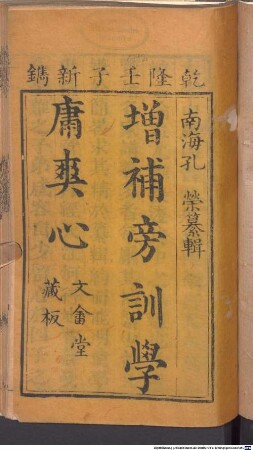 乾隆壬子新鐫
南海孔 榮纂輯
增補旁訓學
庸爽心
文畬堂
藏板